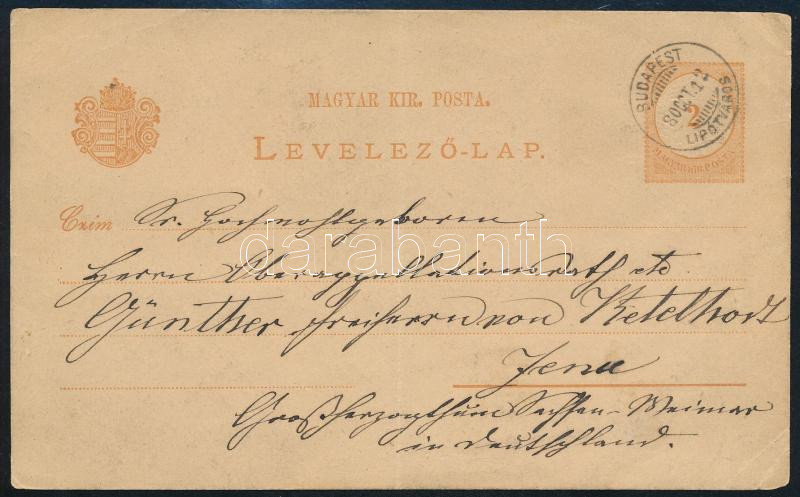 BUDAPEST
80 OCT. 1
LIPÓTVÁROS
2
MAGYAR KIR. POSTA
MAGYAR KIR. POSTA.
LEVELEZŐ-LAP.
Czim Sr. Hochwohlgeboren
Herrn Oberappellationsrath etc
Günther Freiherrn von Ketelhodt
Jena
Großherzogthum Sachsen-Weimar
in Deutschland.
darabanth